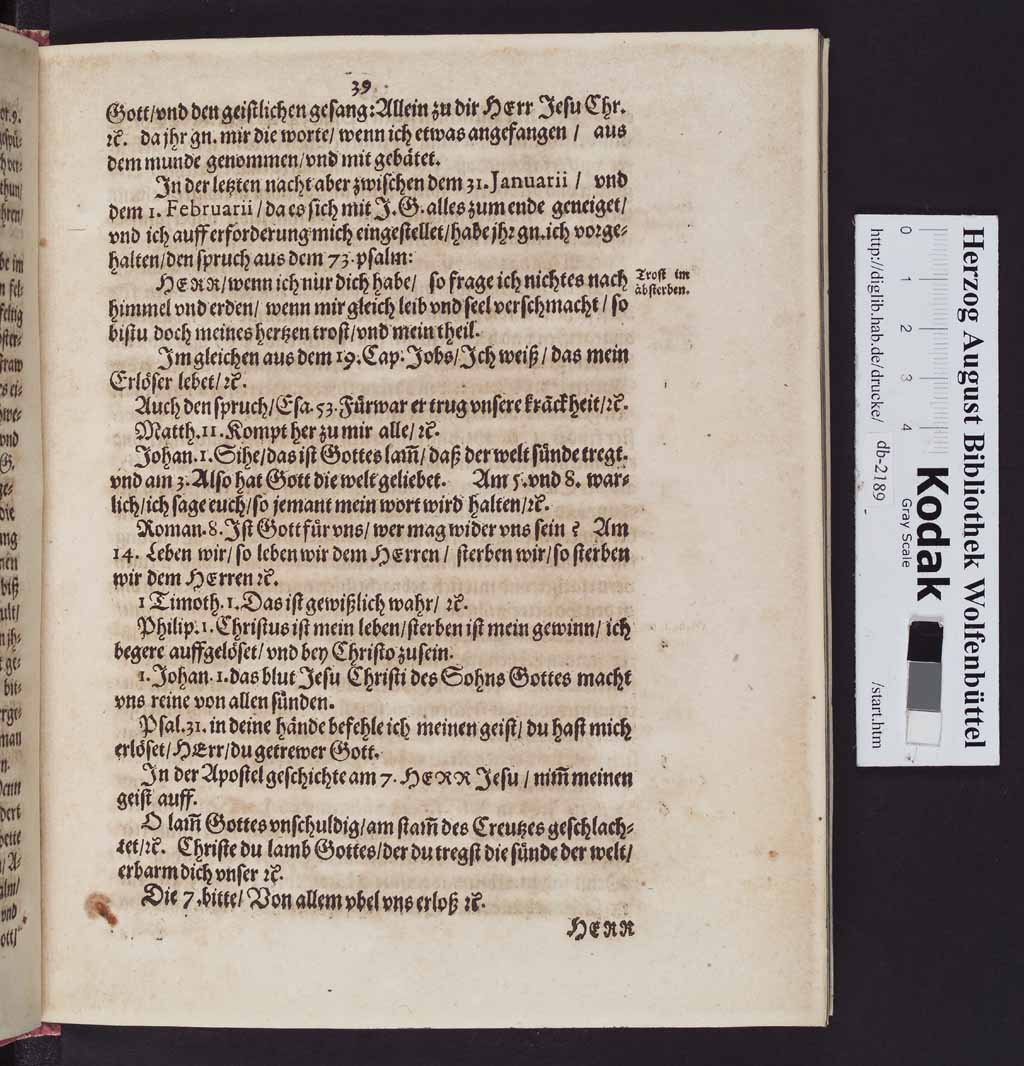 39
Gott/vnd den geistlichen gesang: Allein zu dir HErr Jesu Chr.
ꝛc. da jhr gn. mir die worte/ wenn ich etwas angefangen / aus
dem munde genommen/vnd mit gebätet.
In der letzten nacht aber zwischen dem 31. Januarii / vnd
dem 1. Februarii / da es sich mit J. G. alles zum ende geneiget/
vnd ich auff erforderung mich eingestellet/habe jhr gn. ich vorge-
halten/den spruch aus dem 73. psalm:
HERR/wenn ich nur dich habe/ so frage ich nichtes nach
Trost im
absterben.
himmel vnd erden/ wenn mir gleich leib vnd seel verschmacht / so
bistu doch meines hertzen trost/vnd mein theil.
Im gleichen aus dem 19. Cap. Jobs/Ich weiß / das mein
Erlöser lebet/ꝛc.
Auch den spruch/Esa. 53. Fürwar er trug vnsere kräckheit/ꝛc.
Matth. 11. Kompt her zu mir alle/ꝛc.
Johan. 1. Sihe/das ist Gottes lam̃/ daß der welt sünde tregt.
vnd am 3. Also hat Gott die welt geliebet. Am 5. vnd 8. war-
lich/ich sage euch/so jemant mein wort wird halten/ꝛc.
Roman. 8. Ist Gott für vns/ wer mag wider vns sein ? Am
14. Leben wir/ so leben wir dem HErren / sterben wir/so sterben
wir dem HErren ꝛc.
1 Timoth. 1. Das ist gewißlich wahr/ ꝛc.
Philip. 1. Christus ist mein leben/sterben ist mein gewinn/ ich
begere auffgelöset/ vnd bey Christo zu sein.
1. Johan. 1. das blut Jesu Christi des Sohns Gottes macht
vns reine von allen sünden.
Psal. 31. in deine hände befehle ich meinen geist/ du hast mich
erlöset/HErr/du getrewer Gott.
In der Apostel geschichte am 7. HERR Jesu / nim̃ meinen
geist auff.
O lam̃ Gottes vnschuldig/am stam̃ des Creutzes geschlach-
tet/ꝛc. Christe du lamb Gottes/der du tregst die sünde der welt/
erbarm dich vnser ꝛc.
Die 7. bitte/ Von allem vbel vns erloß ꝛc.
HERR
Herzog August Bibliothek Wolfenbüttel
Kodak
Gray Scale
0 1 2 3 4
http://diglib.hab.de/drucke/ db-2189 /start.htm